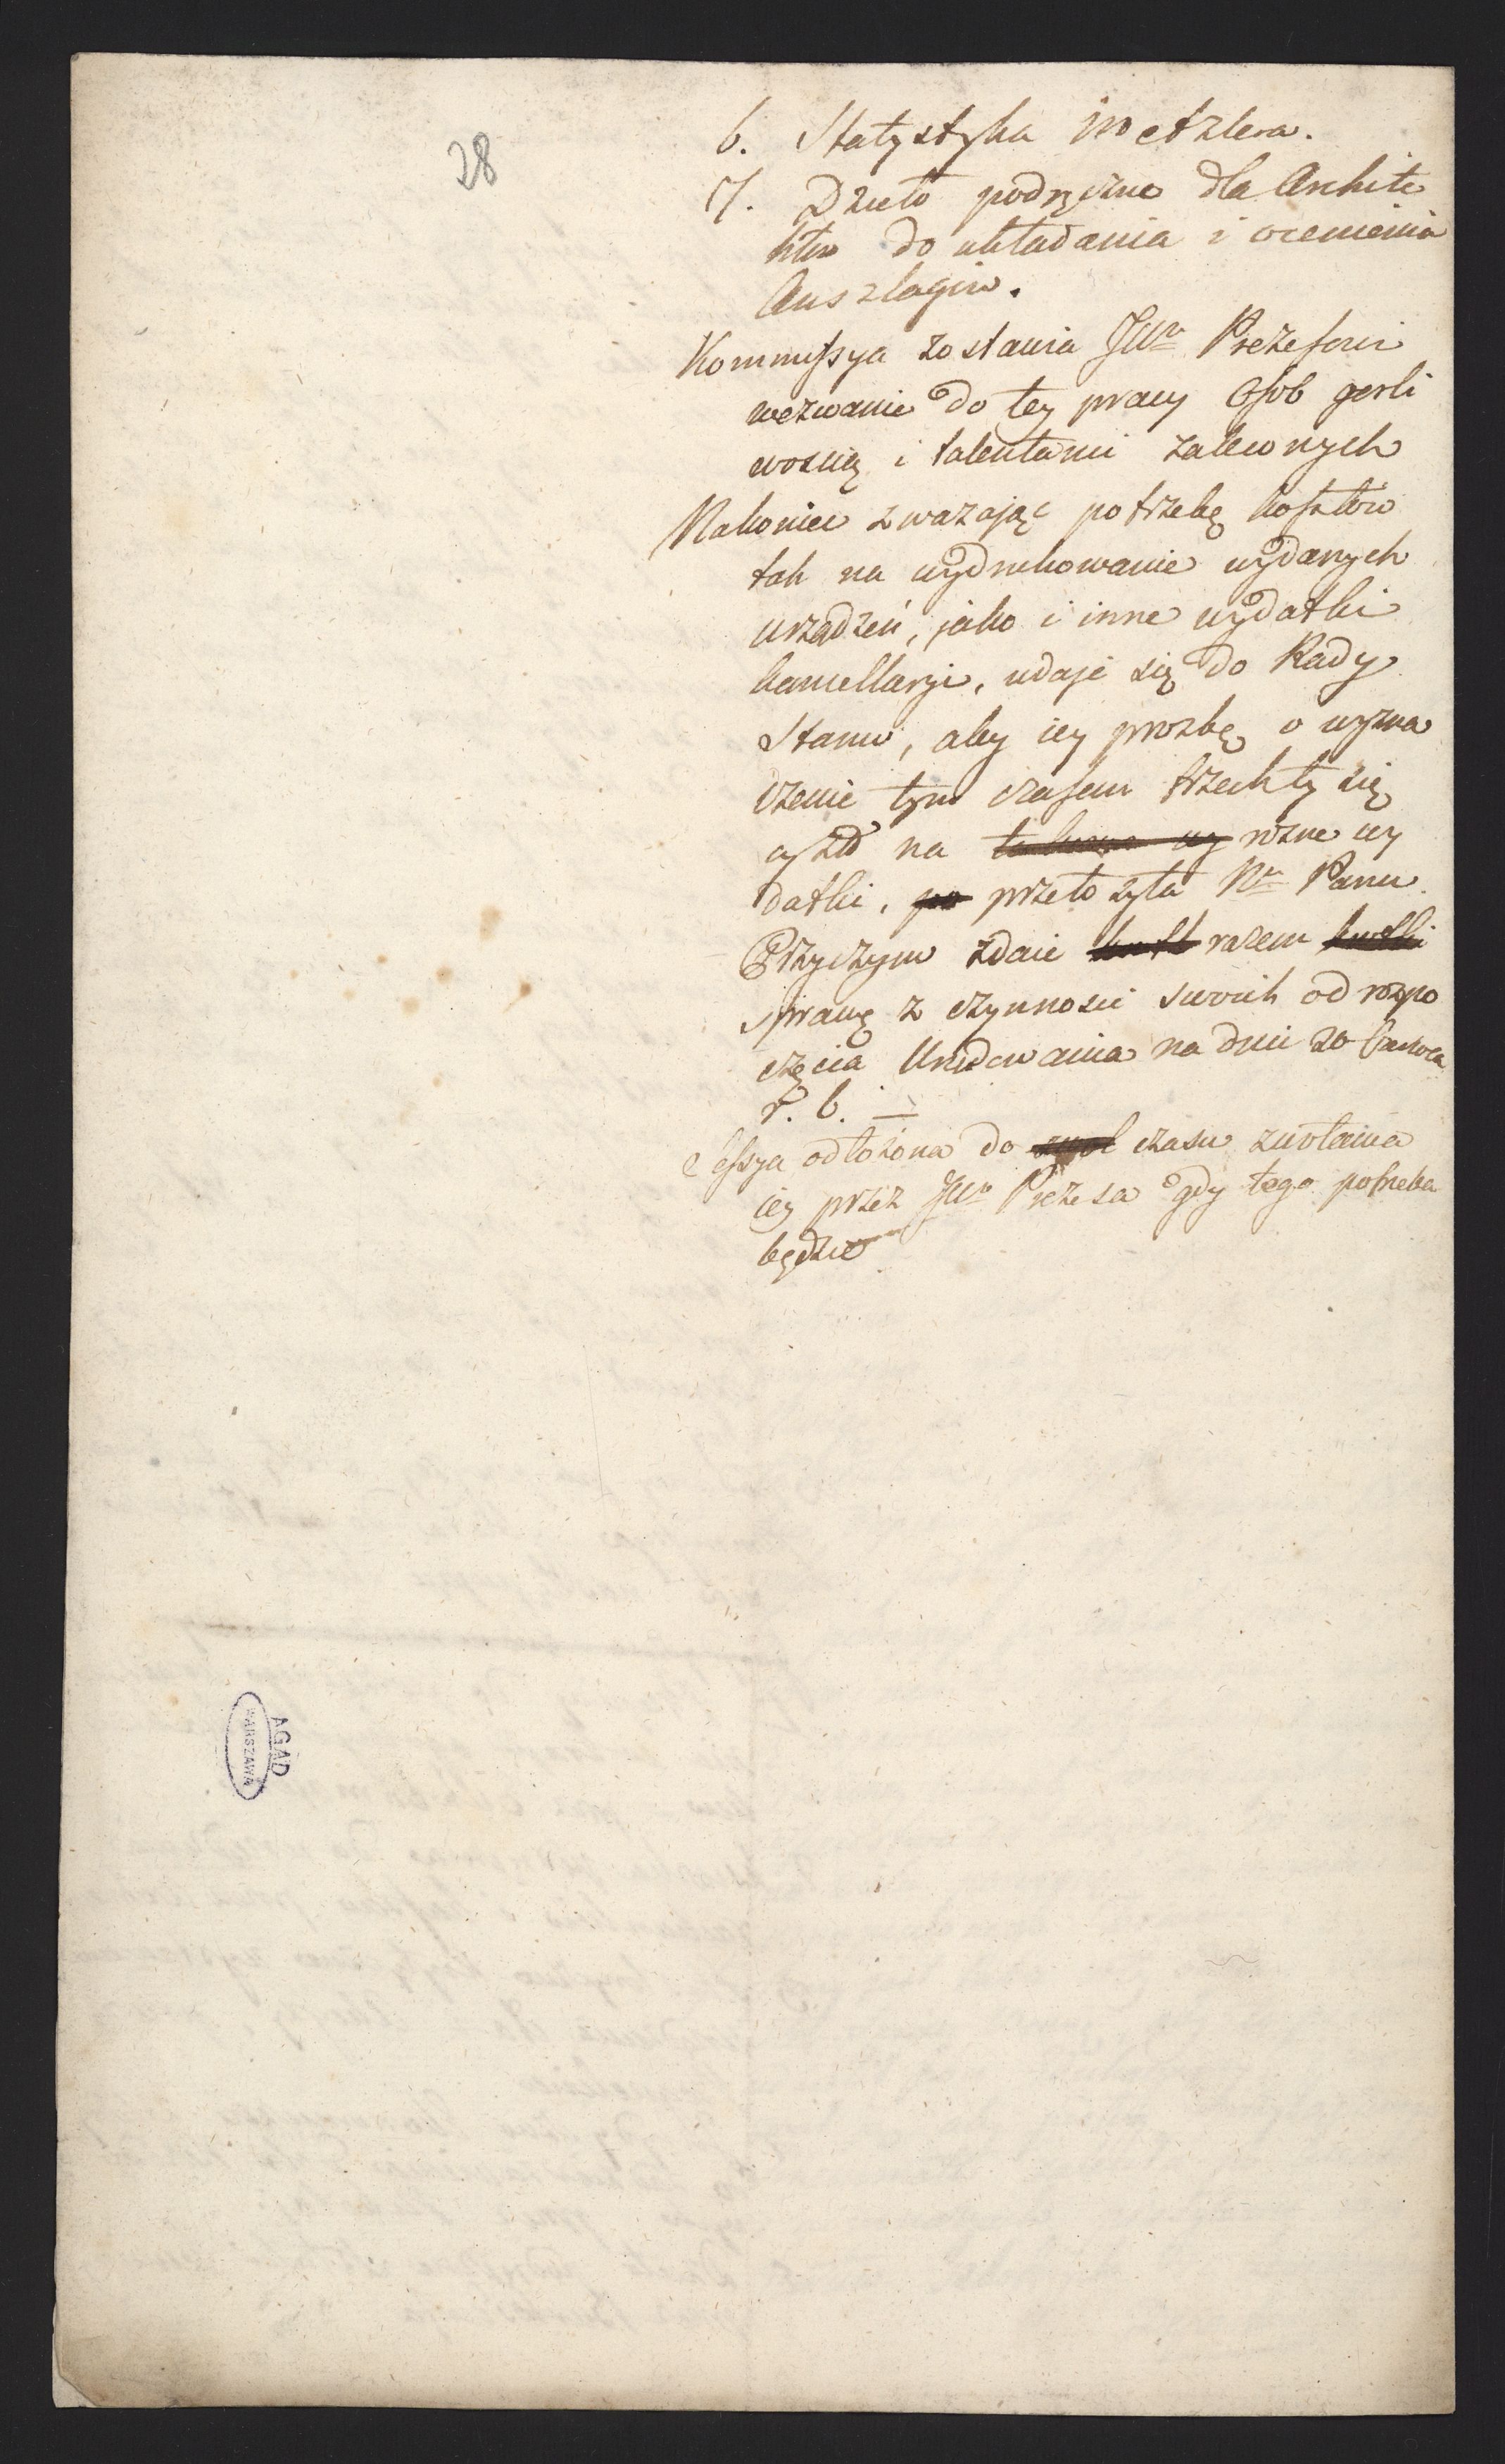 28
6. Statystyka Metzlera.
7. Dzieło podręczne dla Archite
któw do układania i ocenienia
Anszlagów.
Kommissya zostawia JWu Prezesowi
wezwanie do tey pracy Osob gorli
woscią i talentami zalconych
Nakoniec zwazając potrzebę kosztów
tak na wydrukowanie wydanych
urządzeń, jako i inne wydatki
kancellaryi, udaje się do Rady
Stanu, aby iey prozbę o wyzna
czenie tym czasem trzech tysię
cy zło na rózne wy
datki, po przełożyła Nu Panu
Przyczym zdaie razem
sprawę z czynnosci swoich od rozpo
częcia Urzędowania na dniu 20 Czerwca
r. b. —
Sessya odłożona do czasu zwołania
iey przez JWo Prezesa gdy tego potrzeba
będzie
AGAD
WARSZAWA